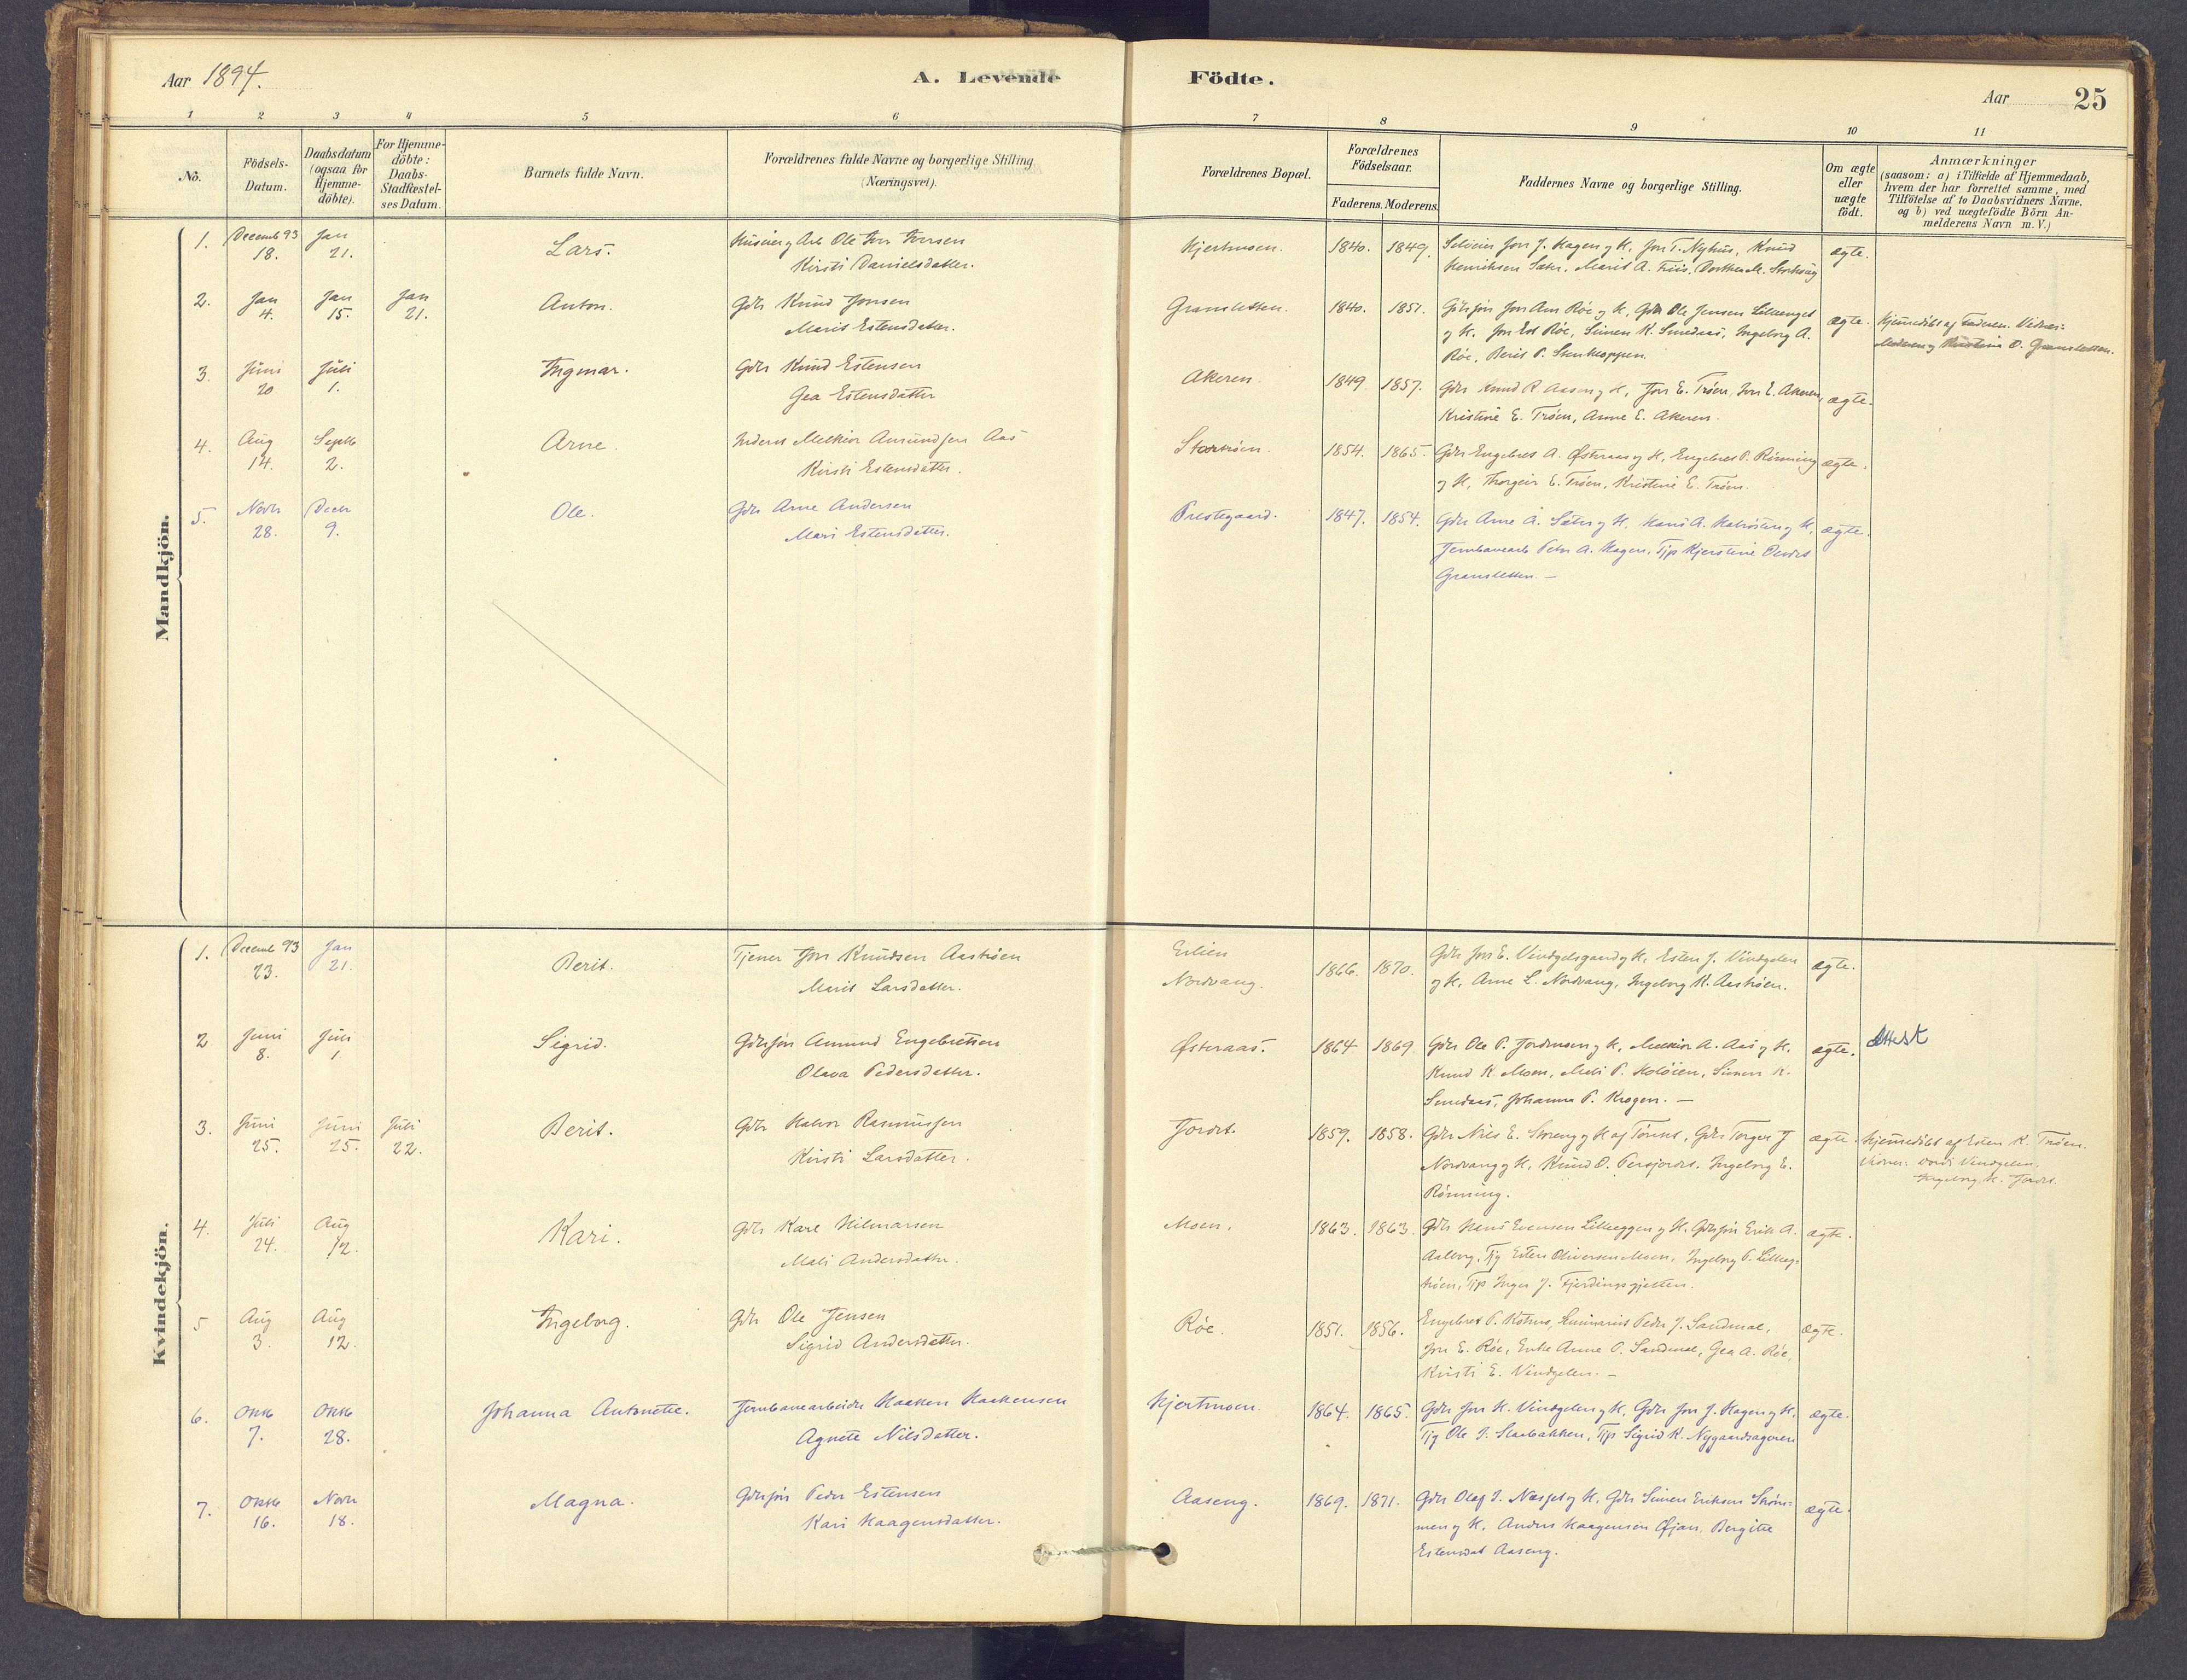 Aar 1894.
A. Levende Födte.
Aar
25
1 2 3 4 5 6 7 8 9 10 11
No.
Födsels-Datum.
Daabsdatum (ogsaa for Hjemme-döbte).
For Hjemme-döbte: Daabs-Stadfæstel-ses Datum.
Barnets fulde Navn.
Forældrenes fulde Navne og borgerlige Stilling (Næringsvei).
Forældrenes Bopæl.
Forældrenes Födselsaar.
Faderens. Moderens.
Faddernes Navne og borgerlige Stilling.
Om ægte eller uægte födt.
Anmærkninger
(saasom: a) i Tilfælde af Hjemmedaab,
hvem der har forrettet samme, med
Tilföielse af to Daabsvidners Navne.
og b) ved uægtefödte Börn An-
melderens Navn m. V.)
Mandkjön.
1. Decemb 93 18. Jan 21. Lars. Ole Iversen Kjertmoen. 1840. 1849. Jon J. Hagen og K, Jon T. Nyhus, Knud ægte.
Kirsti Danielsdatter. Henriksen Sæter, Marit A. Friis,
2. Jan 4. Jan 15. Jan 21. Anton. Gdr Knud Jonsen Gransletten. 1840. 1851. Gdr Ole Jensen Lillenget ægte. Hjemmedöbt af Faderen.
Marit Estensdatter. og K. Jon Est Röe, Simen K. Smedaas, Ingeborg A.
Röe, Berit P.
3. Juni 20 Juli 1. Ingmar. Gdr Knud Estensen Akeren. 1849 1857. Gdr Knud R Aasen og K, Jon E. Tröen, Jon E. Akeren, ægte.
Gea Estensdatter Kristine E. Tröen, Anne E. Akeren.
4. Aug 14. Septb 2. Arne. Melkior Amundsen Aas 1854. 1865. Gdr Engebret A. Østeraas og K, Engebret P. Rönning ægte.
Kirsti Estensdatter. og K, Thorgeir E. Tröen, Kristine E. Tröen.
5. Novbr 28. Decbr 9. Ole. Gdr Arne Andersen Prestegaard. 1847. 1854. Gdr Arne A. Sæter og K. ægte.
Mari Estensdatter. Jernbanearb Peter A. Hagen,
Gransletten. —
Kvindekjön.
1. Decemb 93 23. Jan 21. Berit. Tjener Jon Knudsen Aaströen Eilien 1866. 1870. Gdr Jon E. Vindgelsgaard og K, Esten J. Vindgelen ægte.
Marit Larsdatter. Nordvang. og K, Arne L. Nordvang, Ingeborg K. Aaströen.
2 Juni 8. Juli 1 Sigrid. Gdrsön Amund Engebretsen Østeraas. 1864 1869. Gdr Ole P. Jordmoen og K, Melkior A. Aas og K, ægte. Attest
Olava Pedersdatter. Knud K. Moen, Mali P. Holöien, Simen K.
Smedaas, Johanna P. Krogen. —
3. Juni 25. Juni 25. Juli 22. Berit. Gdr Halvor Rasmussen Jordet. 1859. 1858. Gdr Nils E. og K af Tönset, Gdr Torger J ægte. Hjemmedöbt af Esten K. Tröen.
Kirsti Larsdatter. Nordvang og K, Knud O. Persjordet. Ingeborg E. Vindgelen.
Rönning. Ingeborg K. Jordet.
4. Juli 24. Aug 12. Kari. Gdr Karl Hilmarsen Moen. 1863. 1863. Gdr Hans Evensen Lilleeggen og K. Gdrsön Erik A. ægte.
Mali Andersdatter. Aalborg, Tjg Esten Oliversen Moen, Ingeborg P.
Tjp Inger J. Fjerdingsgjelten.
5 Aug 3. Aug 12. Ingeborg. Gdr Ole Jensen Röe. 1851. 1856. Engebret P. Peder J. Sandmæl, ægte.
Sigrid Andersdatter. Jon E. Röe, Enke Anne O. Sandmæl, Gea A. Röe,
Kirsti E. Vindgelen. —
6. Oktb 7. Oktb 28. Johanna Antonette. Jernbanearbeider Haaken Haakensen Kjertmoen. 1864. 1865. Gdr Jon K. Vindgelen og K, Gdr Jon J. Hagen og K, ægte.
Agnete Nilsdatter. Tjg Ole J. Tjp Sigrid K. Nygaardsageren
7. Oktb 16. Novbr 18. Magna. Gdrsön Peder Estensen Aaseng. 1869. 1871. Gdr Olaf J. og K, Gdr Simen Eriksen ægte.
Kari Haagensdatter. og K. Anders Haagensen Øjan, Bergitte
Estensdat Aaseng.